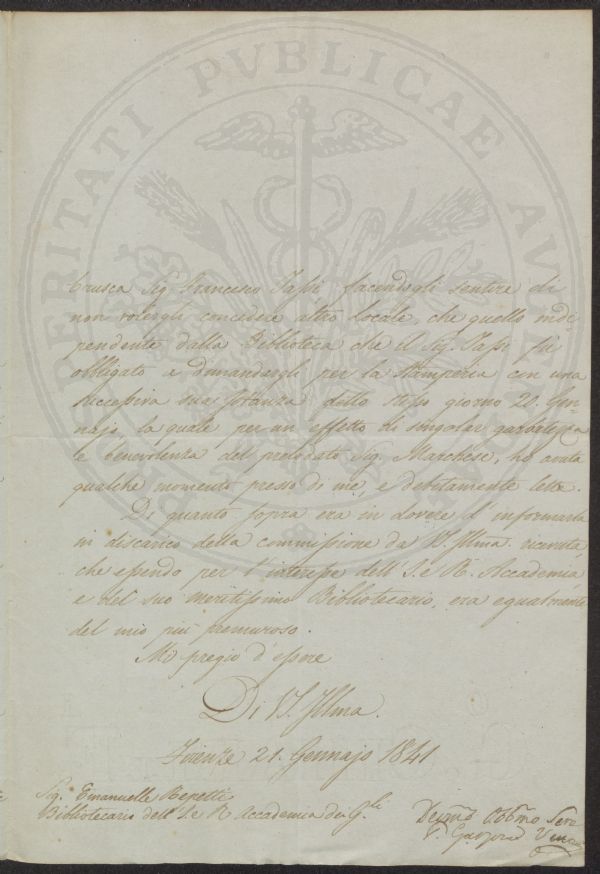 PERITATI PUBLICAE AUGENDAE
crusca Sig. Francesco Tassi, facendogli sentire di
non volergli concedere altro Locale, che quello indi=
pendente dalla Biblioteca che il Sig. Tassi fù
obbligato a dimandargli per la Stamperia con una
successiva sua istanza dello stesso giorno 20. Gen=
najo la quale per un effetto di singolar garbatezza
e benevolenza del prelodato Sig. Marchese, hò avuta
qualche momento presso di me, e debitamente letta.
Di quanto sopra era in dovere d'informarla
in discarico della commissione da V.S. Illma. ricevuta,
che essendo per l'interesse dell'I. e R. Accademia
e del suo meritissimo Bibliotecario, era egualmente
del mio più premuroso.
Mi pregio d'essere
Di V.S. Illma.
Firenze 21. Gennajo 1841
Sig. Emanuelle Repetti
Bibliotecario dell'I. e R. Accademia dei G.li
Devmo Obbmo Serv